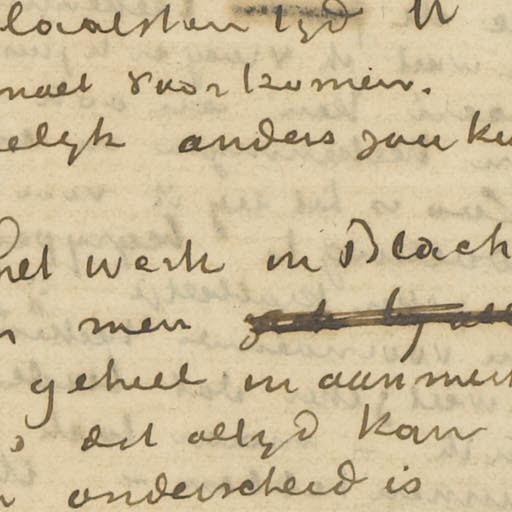 laatsten tyd W
moet voorkomen.
elyk anders zou ku
het werk in Black
men
geheel in aanmerk
dat altyd kan
onderscheid is